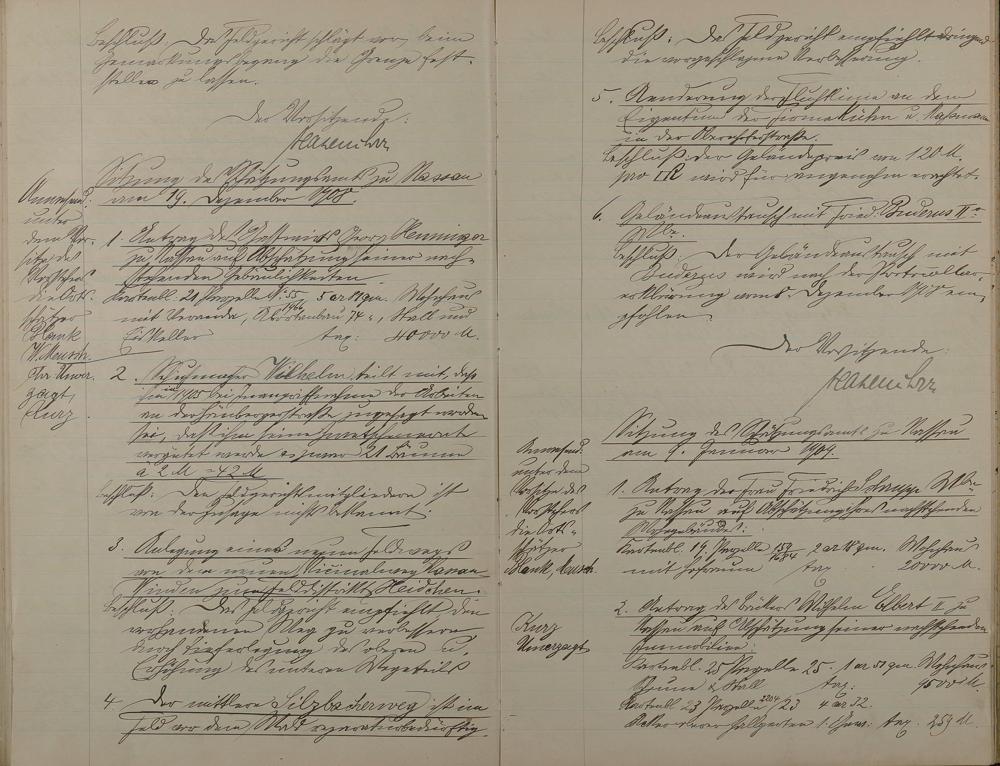 Beschluß: Das Feldgericht schlägt vor, beim
Gemarkungsbegang die Grenze fest-
stellen zu lassen.
Der Vorsitzende:
Hasenclever
Sitzung des Schätzungsamts zu Nassau
am 19. Dezember 1908.
Anwesend:
unter
dem Vor-
sitz des
Vorstehers
die Orts-
schätzer
Blank
W. Meusch.
Chr. Unver-
zagt,
Kurz
1. Antrag des Gastwirts Georg Henninger
zu Nassau auf Abschätzung seiner nach-
stehenden Gebäulichkeiten
Kartenbl. 21 Parzelle 5 ar qm. Wohnhaus
mit Veranda, Stall und
Eiskeller tax: 40000 M.
2. Schuhmacher Wilhelm teilt mit, daß
ihm 1905 bei Inangriffnahme der Arbeiten
an der zugesagt worden
sei, daß ihm seine
vergütet werde u. zwar 21 Bäume
a 2 M = 42 M
Beschluß: Den Feldgerichtsmitgliedern ist
von der Zusage nichts bekannt.
3. Anlegung eines neuen Feldwegs
von dem neuen Vicinalweg Nassau
Winden zum Felddistrikt Heidchen.
Beschluß: Das Feldgericht empfiehlt, den
vorhandenen Weg zu verbessern
durch Tieferlegung des oberen u.
Erhöhung des unteren Wegeteils
4 Der mittlere Silzbacherweg ist im
Feld vor dem Wald reparaturbedürftig.
Beschluß: Das Feldgericht empfiehlt dringend
die vorgeschlagene Verbesserung.
5. Aenderung der Fluchtlinie an dem
Eigentum der Firma u.
in der
Beschluß: der Geländepreis von 120 M.
pro 1R wird für angenehm erachtet.
6. Geländeaustausch mit Fried. Buderus IIr
Beschluß: Der Geländeaustausch mit
Buderus wird nach der Protocollar-
erklärung vom Dezember 1908 em-
pfohlen
Der Vorsitzende:
Hasenclever
Sitzung des Schätzungsamts zu Nassau
am 9. Januar 1909.
Anwesend:
unter dem
Vorsitze des
Vorstehers
die Orts-
schätzer
Blank, Meusch.
Kurz
Unverzagt
1. Antrag der Frau Friedrich Wwe
zu Nassau auf Abschätzung ihres nachstehenden
Wohngebäudes:
Kartenbl. 14, Parzelle 2 ar 18 qm. Wohnhaus
mit Hofraum tax 20000 M.
2. Antrag des Bäckers Wilhelm Elbert II zu
Nassau auf Abschätzung seiner nachstehenden
Immobilien:
Kartenbl. 25 Parzelle 25. 1 ar 51 qm. Wohnhaus
Scheune & Stall tax: 9500 M.
Kartenbl. 23 Parzelle 4 ar 32.
Acker 1. Gew: tax. 259 M